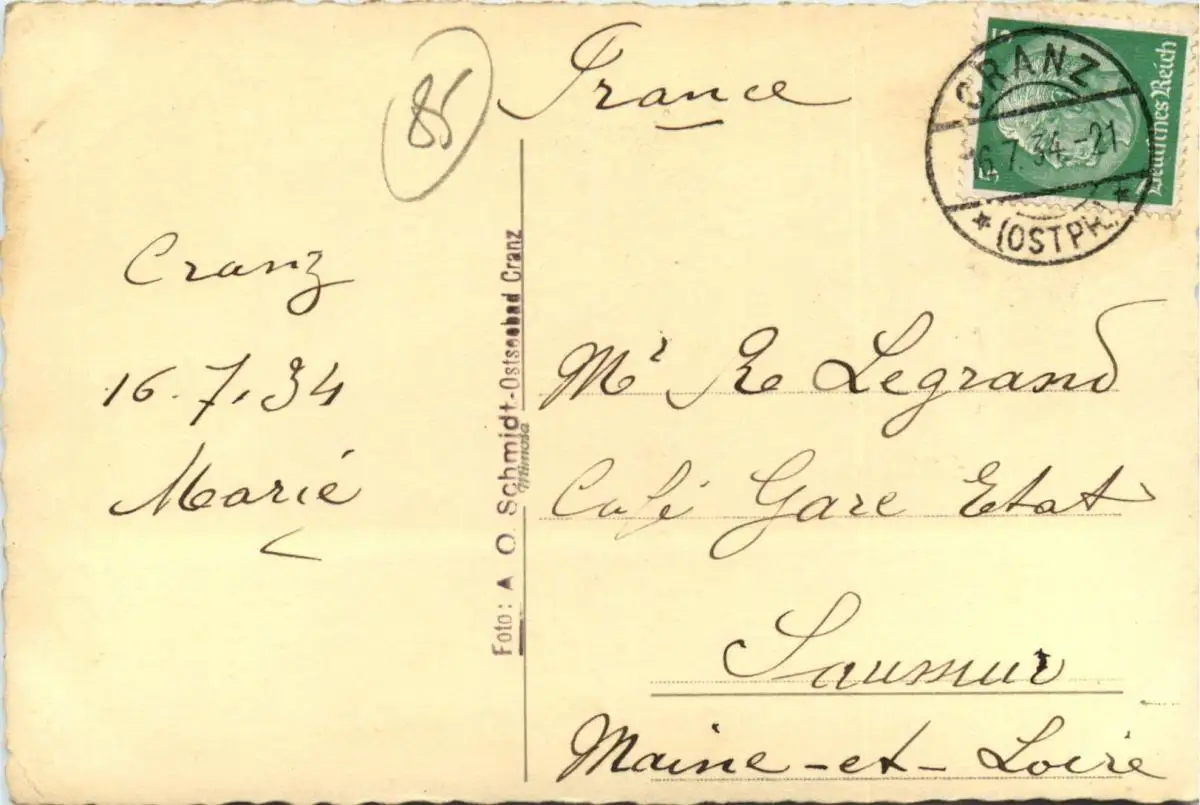 85
France
5
Deutsches Reich
5
CRANZ
16.7.34.-21
* (OSTPR.) *
Cranz
16.7.34
Marie
Foto: A. O. Schmidt.-Ostseebad Cranz
Mimosa
Mr R Legrand
Café Gare Etat
Saumur
Maine-et-Loire